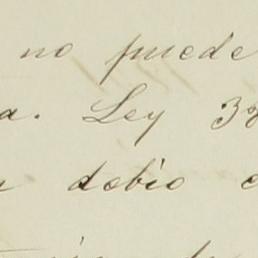 no puede
a. Ley 38
debio